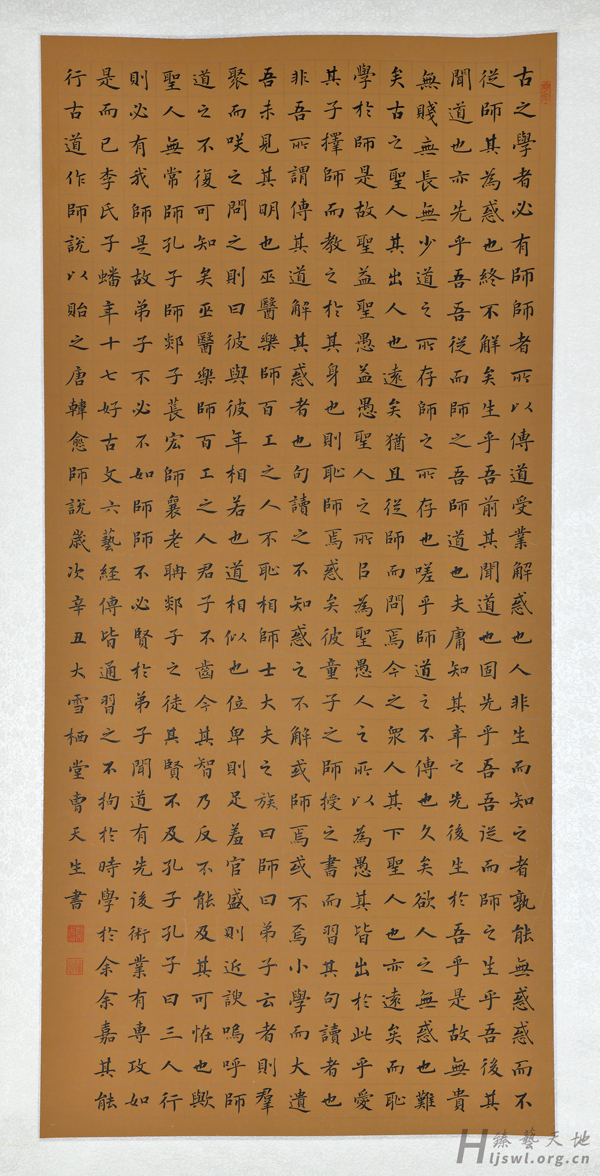 古之學者必有師師者所以傳道受業解惑也人非生而知之者孰能無惑惑而不
從師其為惑也終不解矣生乎吾前其聞道也固先乎吾吾從而師之生乎吾後其
聞道也亦先乎吾吾從而師之吾師道也夫庸知其年之先後生於吾乎是故無貴
無賤無長無少道之所存師之所存也嗟乎師道之不傳也久矣欲人之無惑也難
矣古之聖人其出人也遠矣猶且從師而問焉今之眾人其下聖人也亦遠矣而恥
學於師是故聖益聖愚益愚聖人之所㠯為聖愚人之所以為愚其皆出於此乎愛
其子擇師而教之於其身也則恥師焉惑矣彼童子之師授之書而習其句讀者也
非吾所謂傳其道解其惑者也句讀之不知惑之不解或師焉或不焉小學而大遺
吾未見其明也巫醫樂師百工之人不恥相師士大夫之族曰師曰弟子云者則羣
聚而咲之問之則曰彼與彼年相若也道相似也位卑則足羞官盛則近諛嗚呼師
道之不復可知矣巫醫樂師百工之人君子不齒今其智乃反不能及其可恠也歟
聖人無常師孔子師郯子萇宏師襄老聃郯子之徒其賢不及孔子孔子曰三人行
則必有我師是故弟子不必不如師師不必賢於弟子聞道有先後術業有專攻如
是而已李氏子蟠年十七好古文六藝經傳皆通習之不拘於時學於余余嘉其能
行古道作師說以貽之唐韓愈師說歲次辛丑大雪栖堂曹天生書
臻藝天地
Hljswl.org.cn